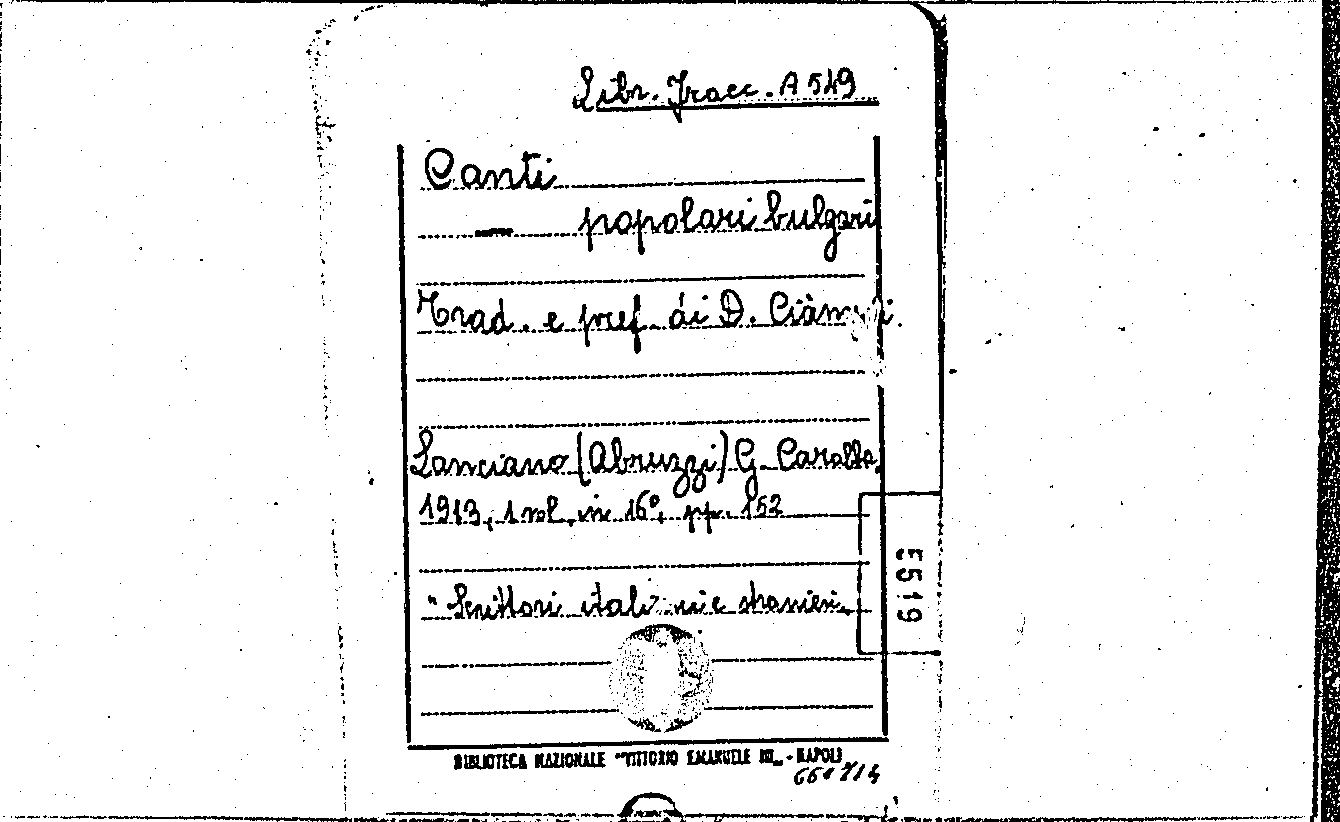 Libr. Tracc. A 549
Canti
popolari bulgari
Trad. e pref. di D. Ciàmpoli.
Lanciano (Abruzzi) G. Carabba.
1913, 1 vol. in 16°, pp. 152
"Scrittori italiani e stranieri„
5519
BIBLIOTECA NAZIONALE "VITTORIO EMANUELE III„ - NAPOLI